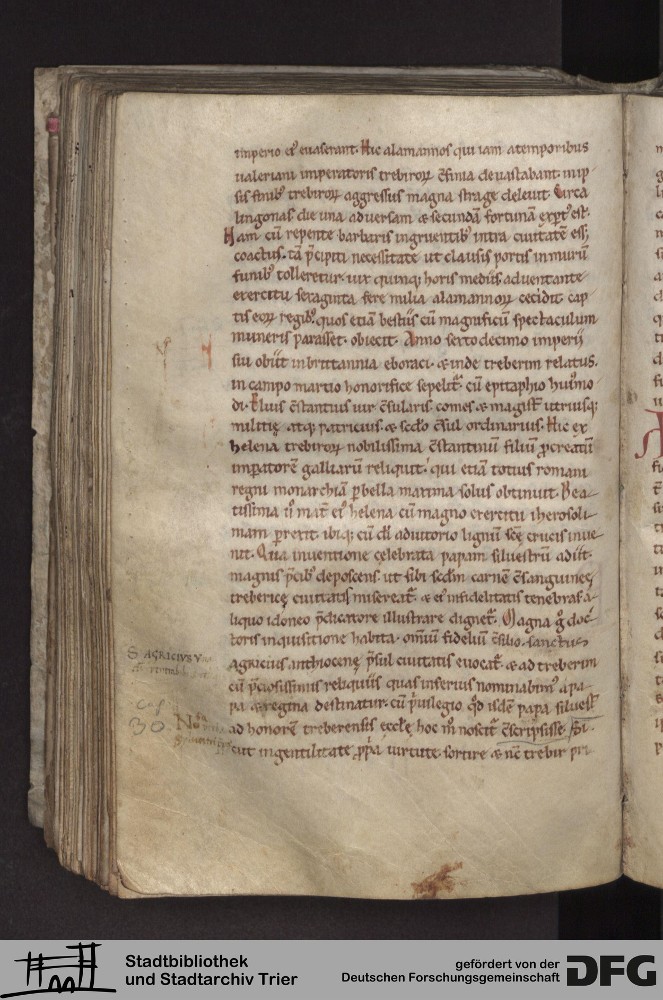 imperio et euaserant. Hic alamannos qui iam a temporibus
ualeriani imperatoris treuiroꝝ c̄finia deuastabant. in ip
sis finibꝰ treuiroꝝ aggressus magna strage deleuit. Circa
lingonas die una aduersam & secundā fortunā exptꝰ est.
Nam cū repente barbaris ingruentibꝰ intra ciuitatē ess;
coactus. tā p̄cipiti necessitate ut clausis portis in murū
funibꝰ tolleretur. uix quinq; horis mediis aduentante
exercitu sexaginta fere milia alamannoꝝ cecidit. cap
tis eoꝝ regibꝰ. quos etiā bestiis cū magnificū spectaculum
muneris parasset. obiecit. Anno sextodecimo imperii
sui obiit in brittannia eboraci. & inde treberim relatus.
in campo martio honorifice sepelit̄. cū epitaphio huiꝰmo
di. Fluuis c̄stantius uir c̄sularis. comes & magist̄ utriusq;
militię atq; patricius. & sc̄do c̄sul ordinarius. Hic ex
helena treberoꝝ nobilissima c̄stantinū filiū p̄creatū
imp̄atorē galliarū reliquit. qui etiā totius romani
regni monarchiā p bella maxima solus obtinuit. Bea
tissima ū mat̄ eiꝰ helena cū magno exercitu iherosoli
mam p̄rexit. ibiq; cū di adiutorio lignū sc̄ę crucis inue
nit. Qua inuentione celebrata papam siluestrū adiit.
magnis p̄cibꝰ deposcens. ut sibi sc̄dm carnē c̄sanguineę
treberice ciuitatis misereat̄. & eiꝰ infidelitatis tenebras a
liquo idoneo p̄dicatore illustrare dignet̄. Magna g̊ doc
toris inquisitione habita. omniū fidelium c̄silio. sanctus
agricius anthiocenę p̄sul ciuitatis euocat̄. & ad treberim
cū p̄ciosissimis reliquiis quas inferius nominabimꝰ a pa
pa & regina destinatur. cū p̄uilegio qd̄ isdē papa siluest̄
ad honorē treberensis eccl̄ę hoc m̊ noscit̄ c̄scripsisse. Si
cut in gentilitate p̄pa uirtute. sortire & nc̄ trebir pri
S. AGRICIVS
Cap
30.
Stadtbibliothek
und Stadtarchiv Trier
gefördert von der
Deutschen Forschungsgemeinschaft
DFG